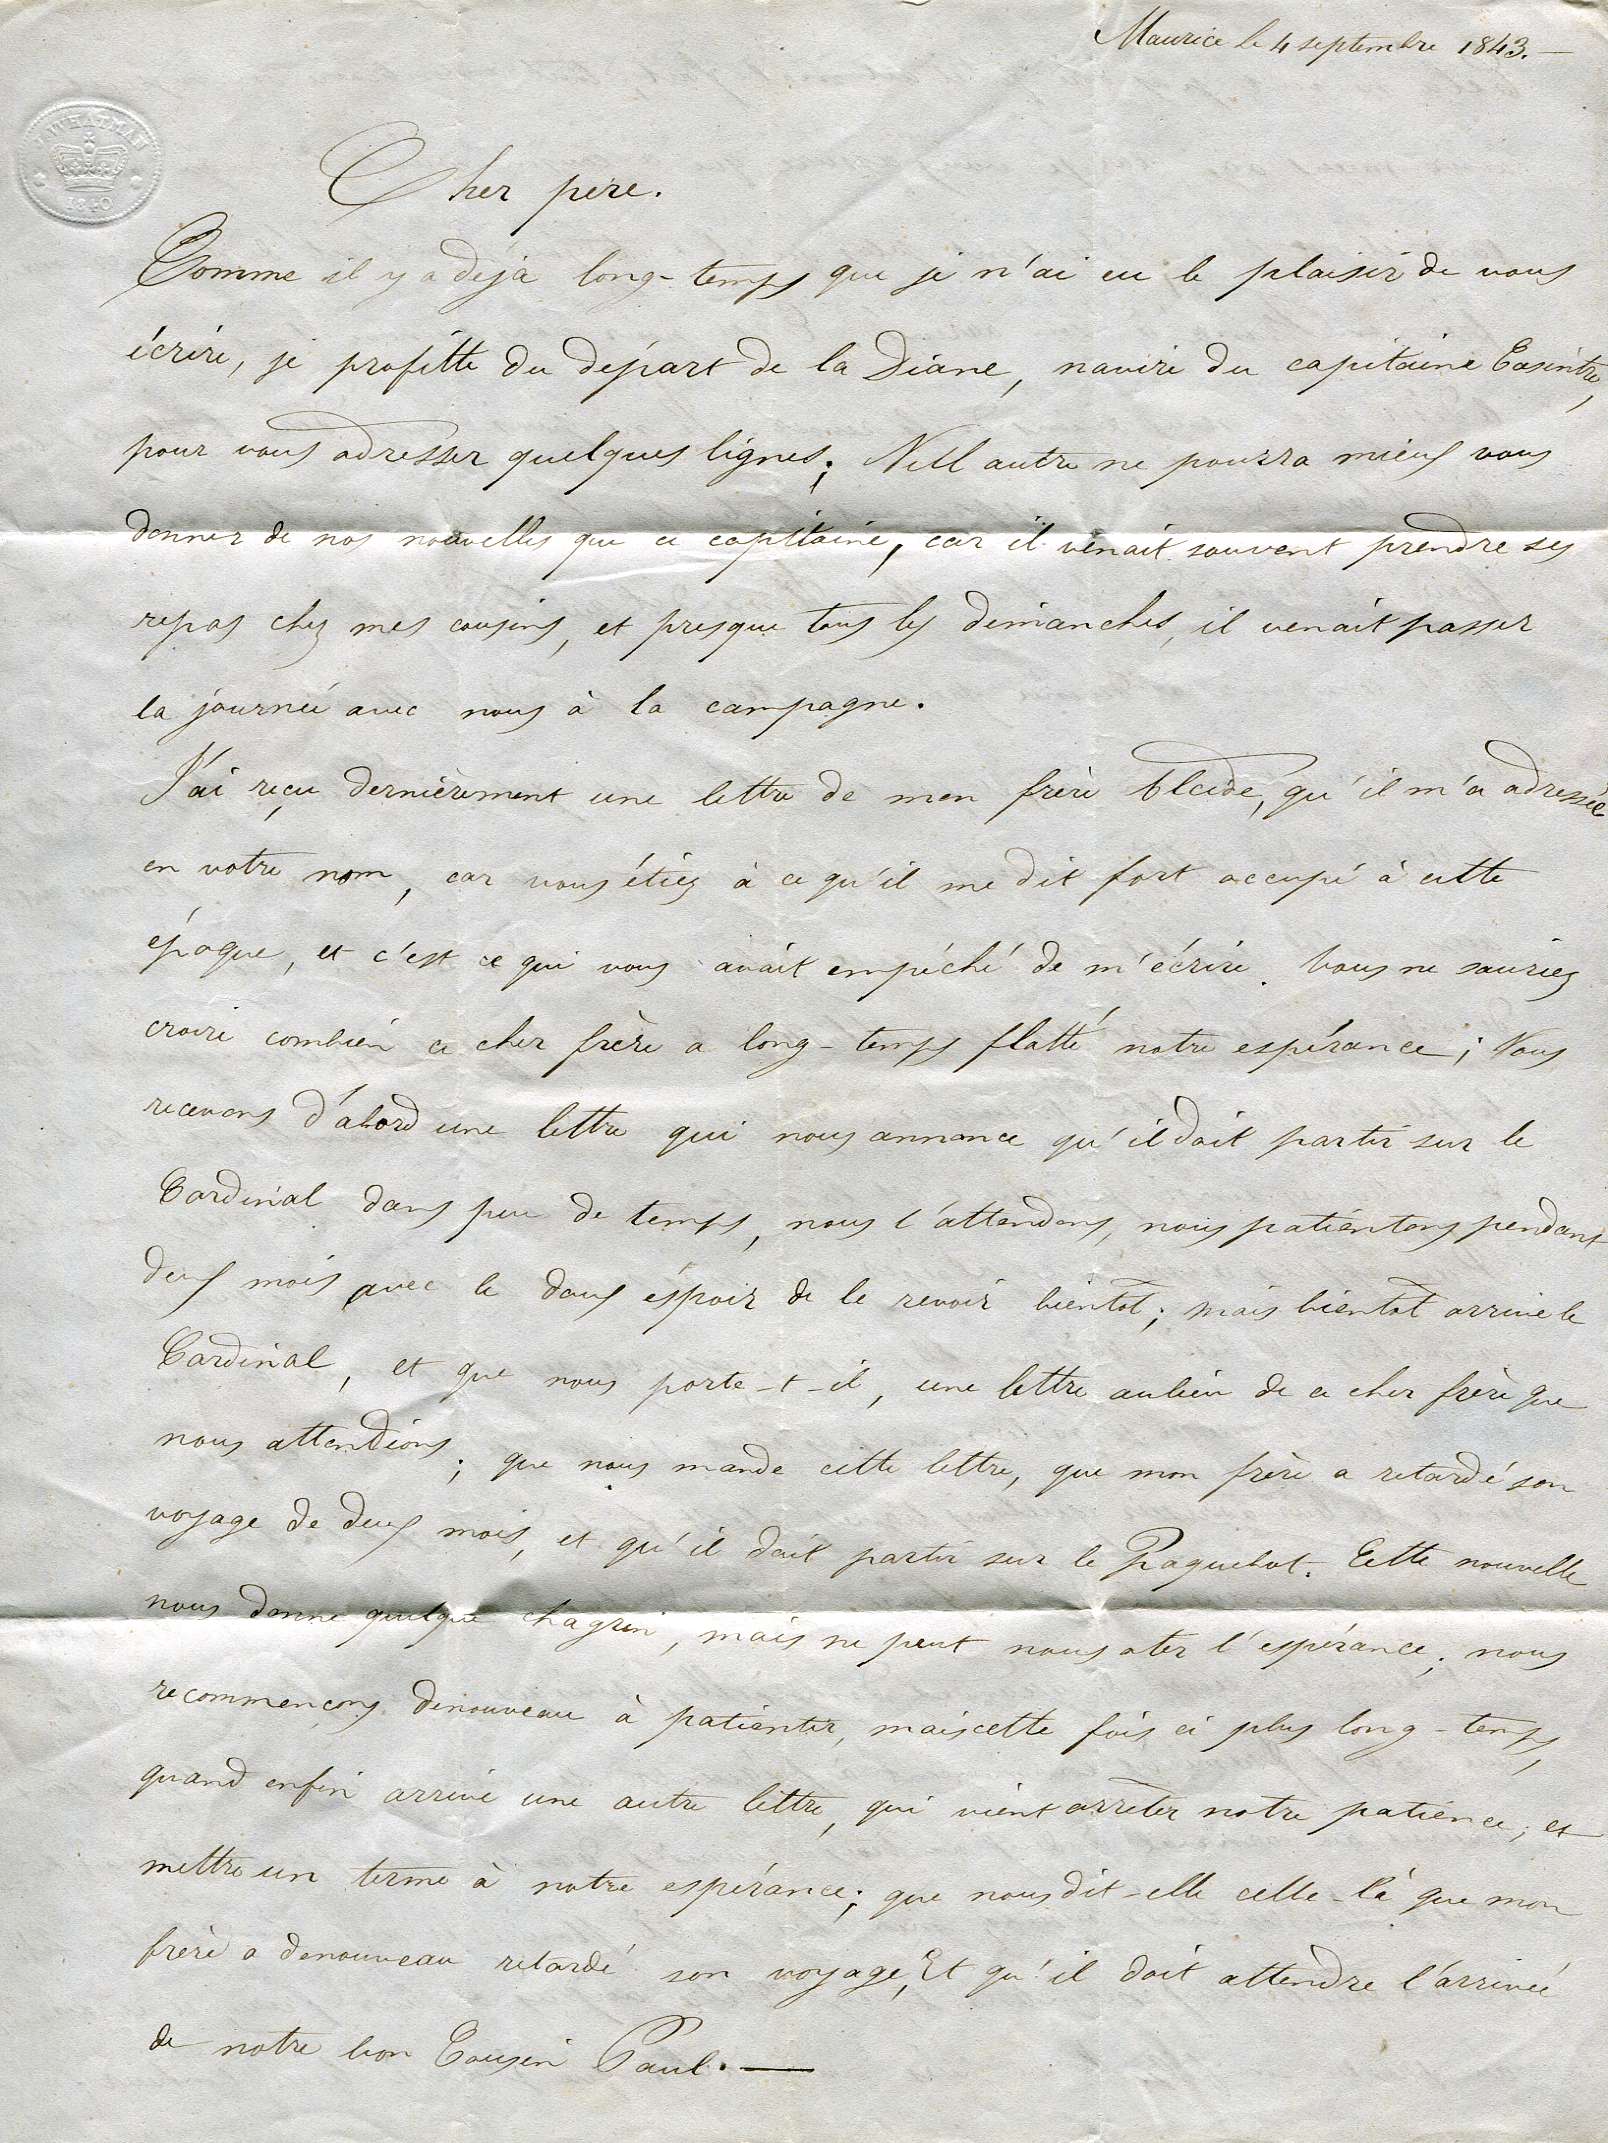 Maurice le 4 septembre 1843. —
J WHATMAN
1840
Cher pere.
Comme il y a déja long-temps que je n'ai eu le plaisir de vous
écrire, je profitte du départ de la Diane, navire du capitaine
pour vous adresser quelques lignes; Null autre ne pourra mieux vous
donner de nos nouvelles que ce capitaine, car il venait souvent prendre ses
repas chez mes cousins, et presque tous les dimanches, il venait passer
la journée avec nous à la campagne.
J'ai reçu dernièrement une lettre de mon frère, qu'il m'a adressée
en votre nom, car vous étiez à ce qu'il me dit fort occupé à cette
époque, et c'est ce qui vous avait empéché de m'écrire. Vous ne sauriez
croire combien ce cher frère a long-temps flatté notre espérance; Nous
recevons d'abord une lettre qui nous annonce qu'il doit partir sur le
Cardinal dans peu de temps, nous l'attendons, nous patientons pendant
deux mois avec le doux éspoir de le revoir bientot; mais bientot arrive le
Cardinal, et que nous porte-t-il, une lettre aulieu de ce cher frère que
nous attendions; que nous mande cette lettre, que mon frère a retardé son
voyage de deux mois, et qu'il doit partir sur le Paquebot. Cette nouvelle
nous donne quelque chagrin, mais ne peut nous oter l'espérance; nous
recommençons denouveau à patienter, mais cette fois ci plus long-temps,
quand enfin arrive une autre lettre, qui vient arrêter notre patience, et
mettre un terme à notre espérance; que nous dit-elle celle-là que mon
frère a denouveau retardé son voyage, Et qu'il doit attendre l'arrivée
de notre bon Cousin Paul. —